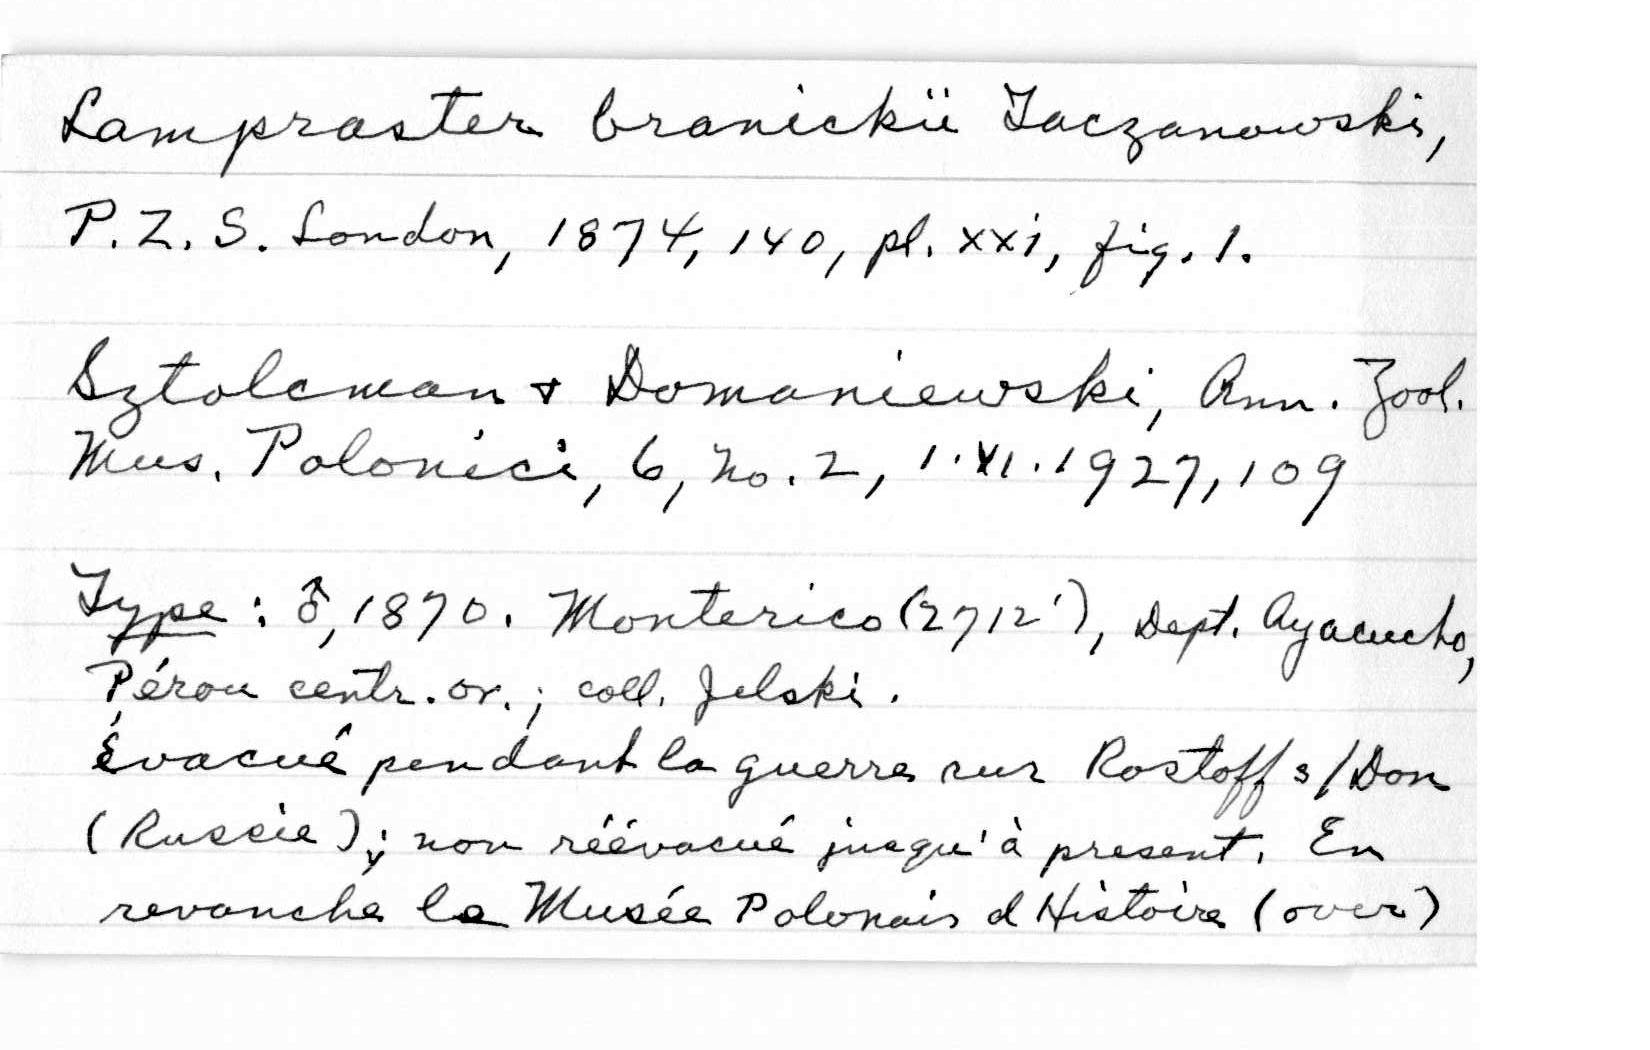 Lampraster branickii Taczanowski,
P. Z. S. London, 1874, 140, pl. xxi, fig. 1.
Sztolcman & Domaniewski, Ann. Zool.
Mus. Polonici, 6, no. 2, 1.XI.1927, 109
Type: ♂, 1870. Monterico (2712'), Dept. Ayacucho,
Pérou centr. or.; coll. Jelski.
Évacué pendant la guerre sur Rostoff s/Don
(Russie); non réévacué jusqu'à present. En
revanche le Musée Polonais d Histoire (over)